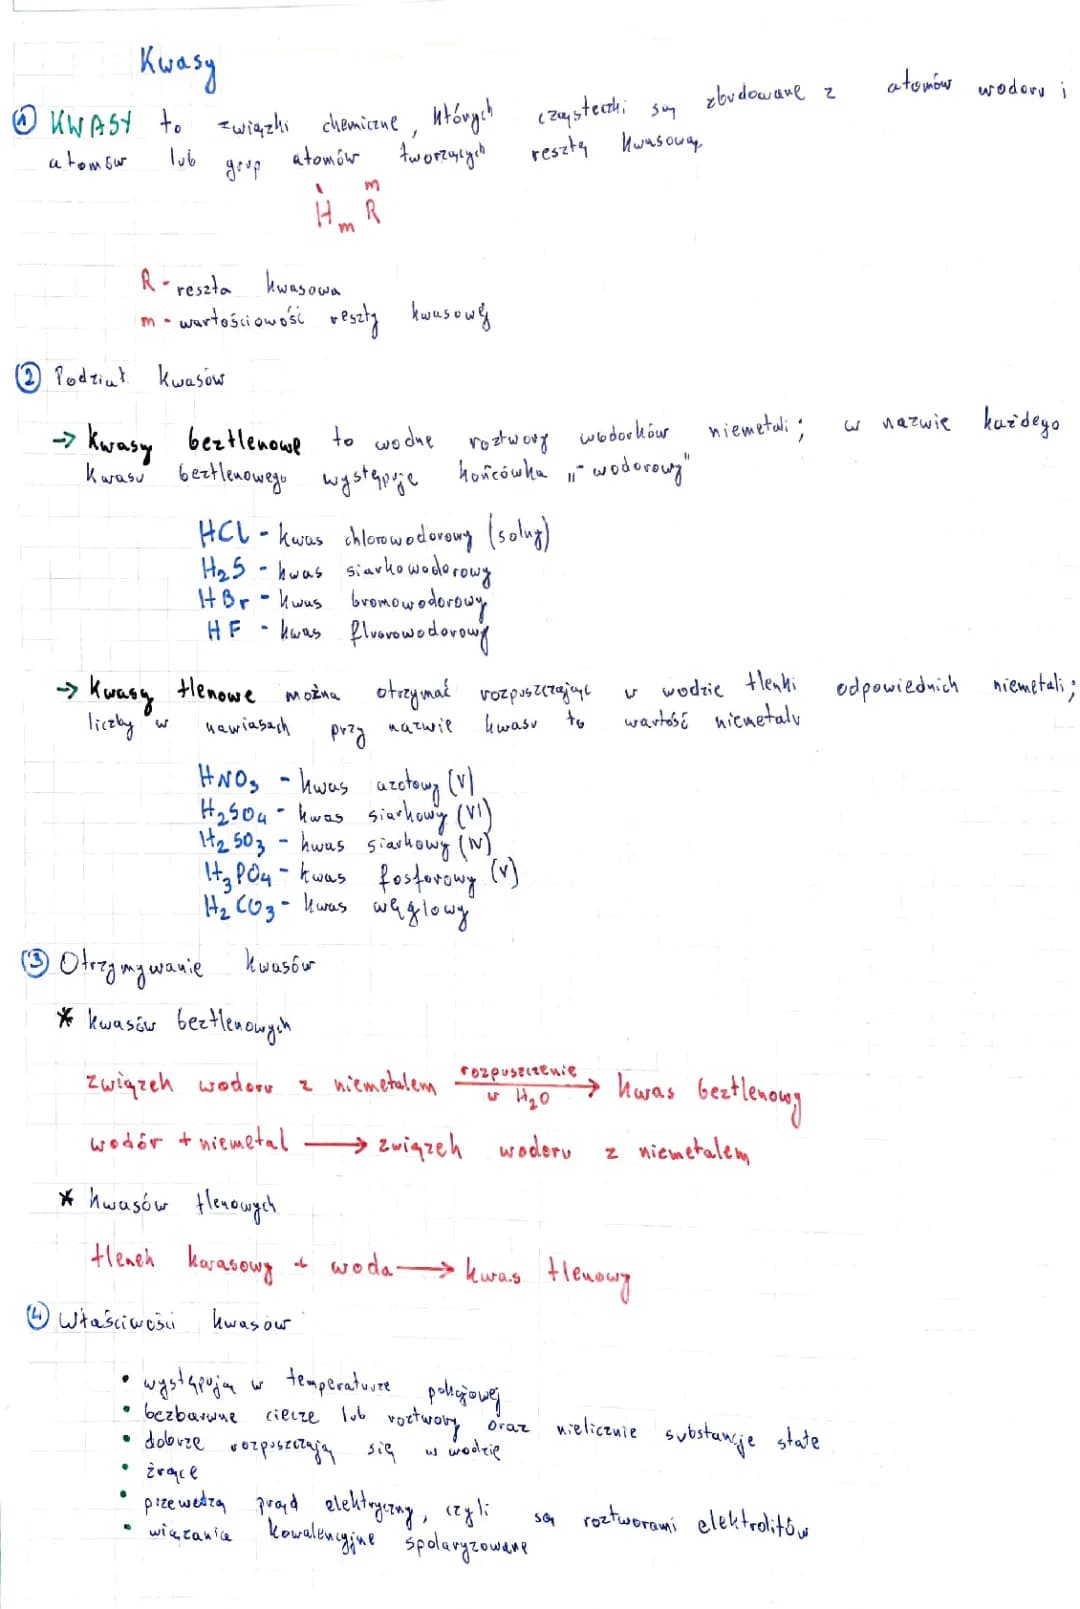 Kwasy
① KWASY to związki chemiczne, których cząsteczki są zbudowane z atomów wodoru i
atomów lub grup atomów tworzących resztę kwasową
I m
HₘR
R - reszta kwasowa
m - wartościowość reszty kwasowej
② Podział kwasów
→ Kwasy beztlenowe to wodne roztwory wodorków niemetali; w nazwie każdego
kwasu beztlenowego występuje końcówka „-wodorowy"
HCl - kwas chlorowodorowy (solny)
H₂S - kwas siarkowodorowy
HBr - kwas bromowodorowy
HF - kwas fluorowodorowy
→ Kwasy tlenowe można otrzymać rozpuszczając w wodzie tlenki odpowiednich niemetali;
liczby w nawiasach przy nazwie kwasu to wartość niemetalu
HNO₃ - kwas azotowy (V)
H₂SO₄ - kwas siarkowy (VI)
H₂SO₃ - kwas siarkowy (IV)
H₃PO₄ - kwas fosforowy (V)
H₂CO₃ - kwas węglowy
③ Otrzymywanie kwasów
* kwasów beztlenowych
rozpuszczenie
związek wodoru z niemetalem → kwas beztlenowy
w H₂O
wodór + niemetal → związek wodoru z niemetalem
* kwasów tlenowych
tlenek kwasowy + woda → kwas tlenowy
④ Właściwości kwasów
• występują w temperaturze pokojowej
• bezbarwne ciecze lub roztwory oraz nielicznie substancje stałe
• dobrze rozpuszczają się w wodzie
• żrące
• przewodzą prąd elektryczny, czyli są roztworami elektrolitów
• wiązania kowalencyjne spolaryzowane